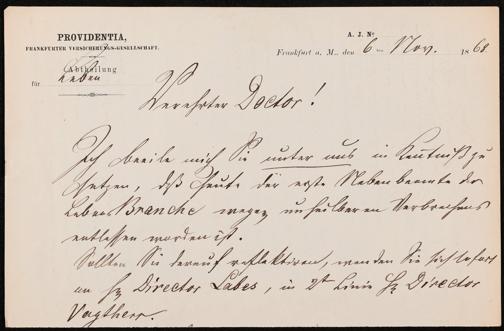 PROVIDENTIA,
FRANKFURTER VERSICHERUNGS-GESELLSCHAFT.
Abtheilung
für Leben
A. J. No
Frankfurt a. M., den 6 Nov. 1868
Verehrter Doctor!
Ich beeile mich Sie unter uns in Kentniß zu
setzen, daß heute der erste Nebenbeamte der
Lebens Branche wegen unheilbaren Verbrechens
entlassen worden ist.
Sollten Sie darauf reflektiren, wenden Sie sich sofort
an Hr Director Labes, in 2ter Linie Hr Director
Vogtherr.